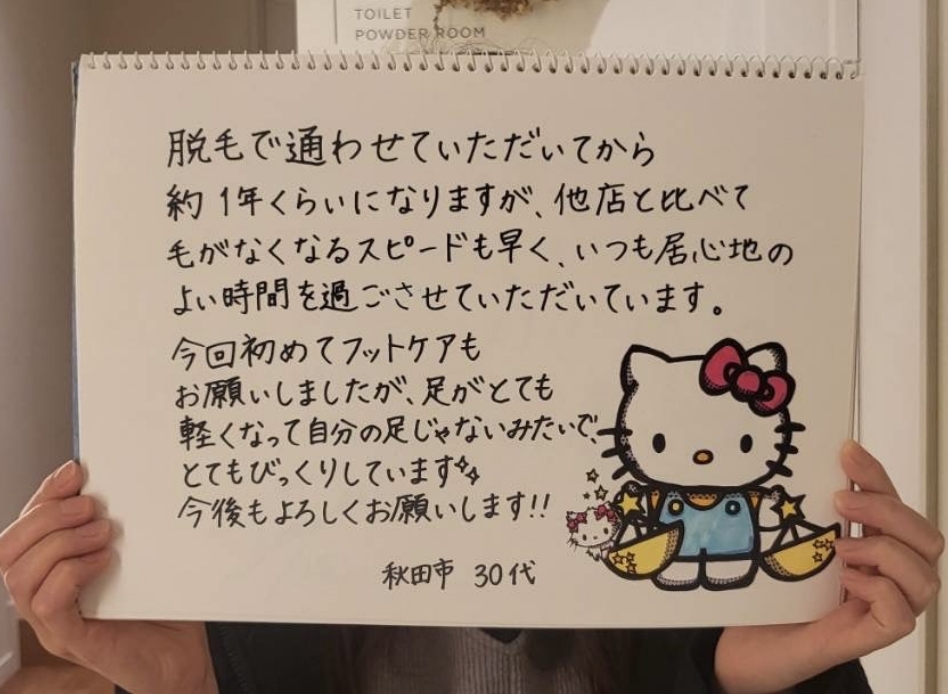 TOILET
POWDER ROOM
脱毛で通わせていただいてから
約1年くらいになりますが、他店と比べて
毛がなくなるスピードも早く、いつも居心地の
よい時間を過ごさせていただいています。
今回初めてフットケアも
お願いしましたが、足がとても
軽くなって自分の足じゃないみたいで、
とてもびっくりしています✨
今後もよろしくお願いします!!
秋田市 30代